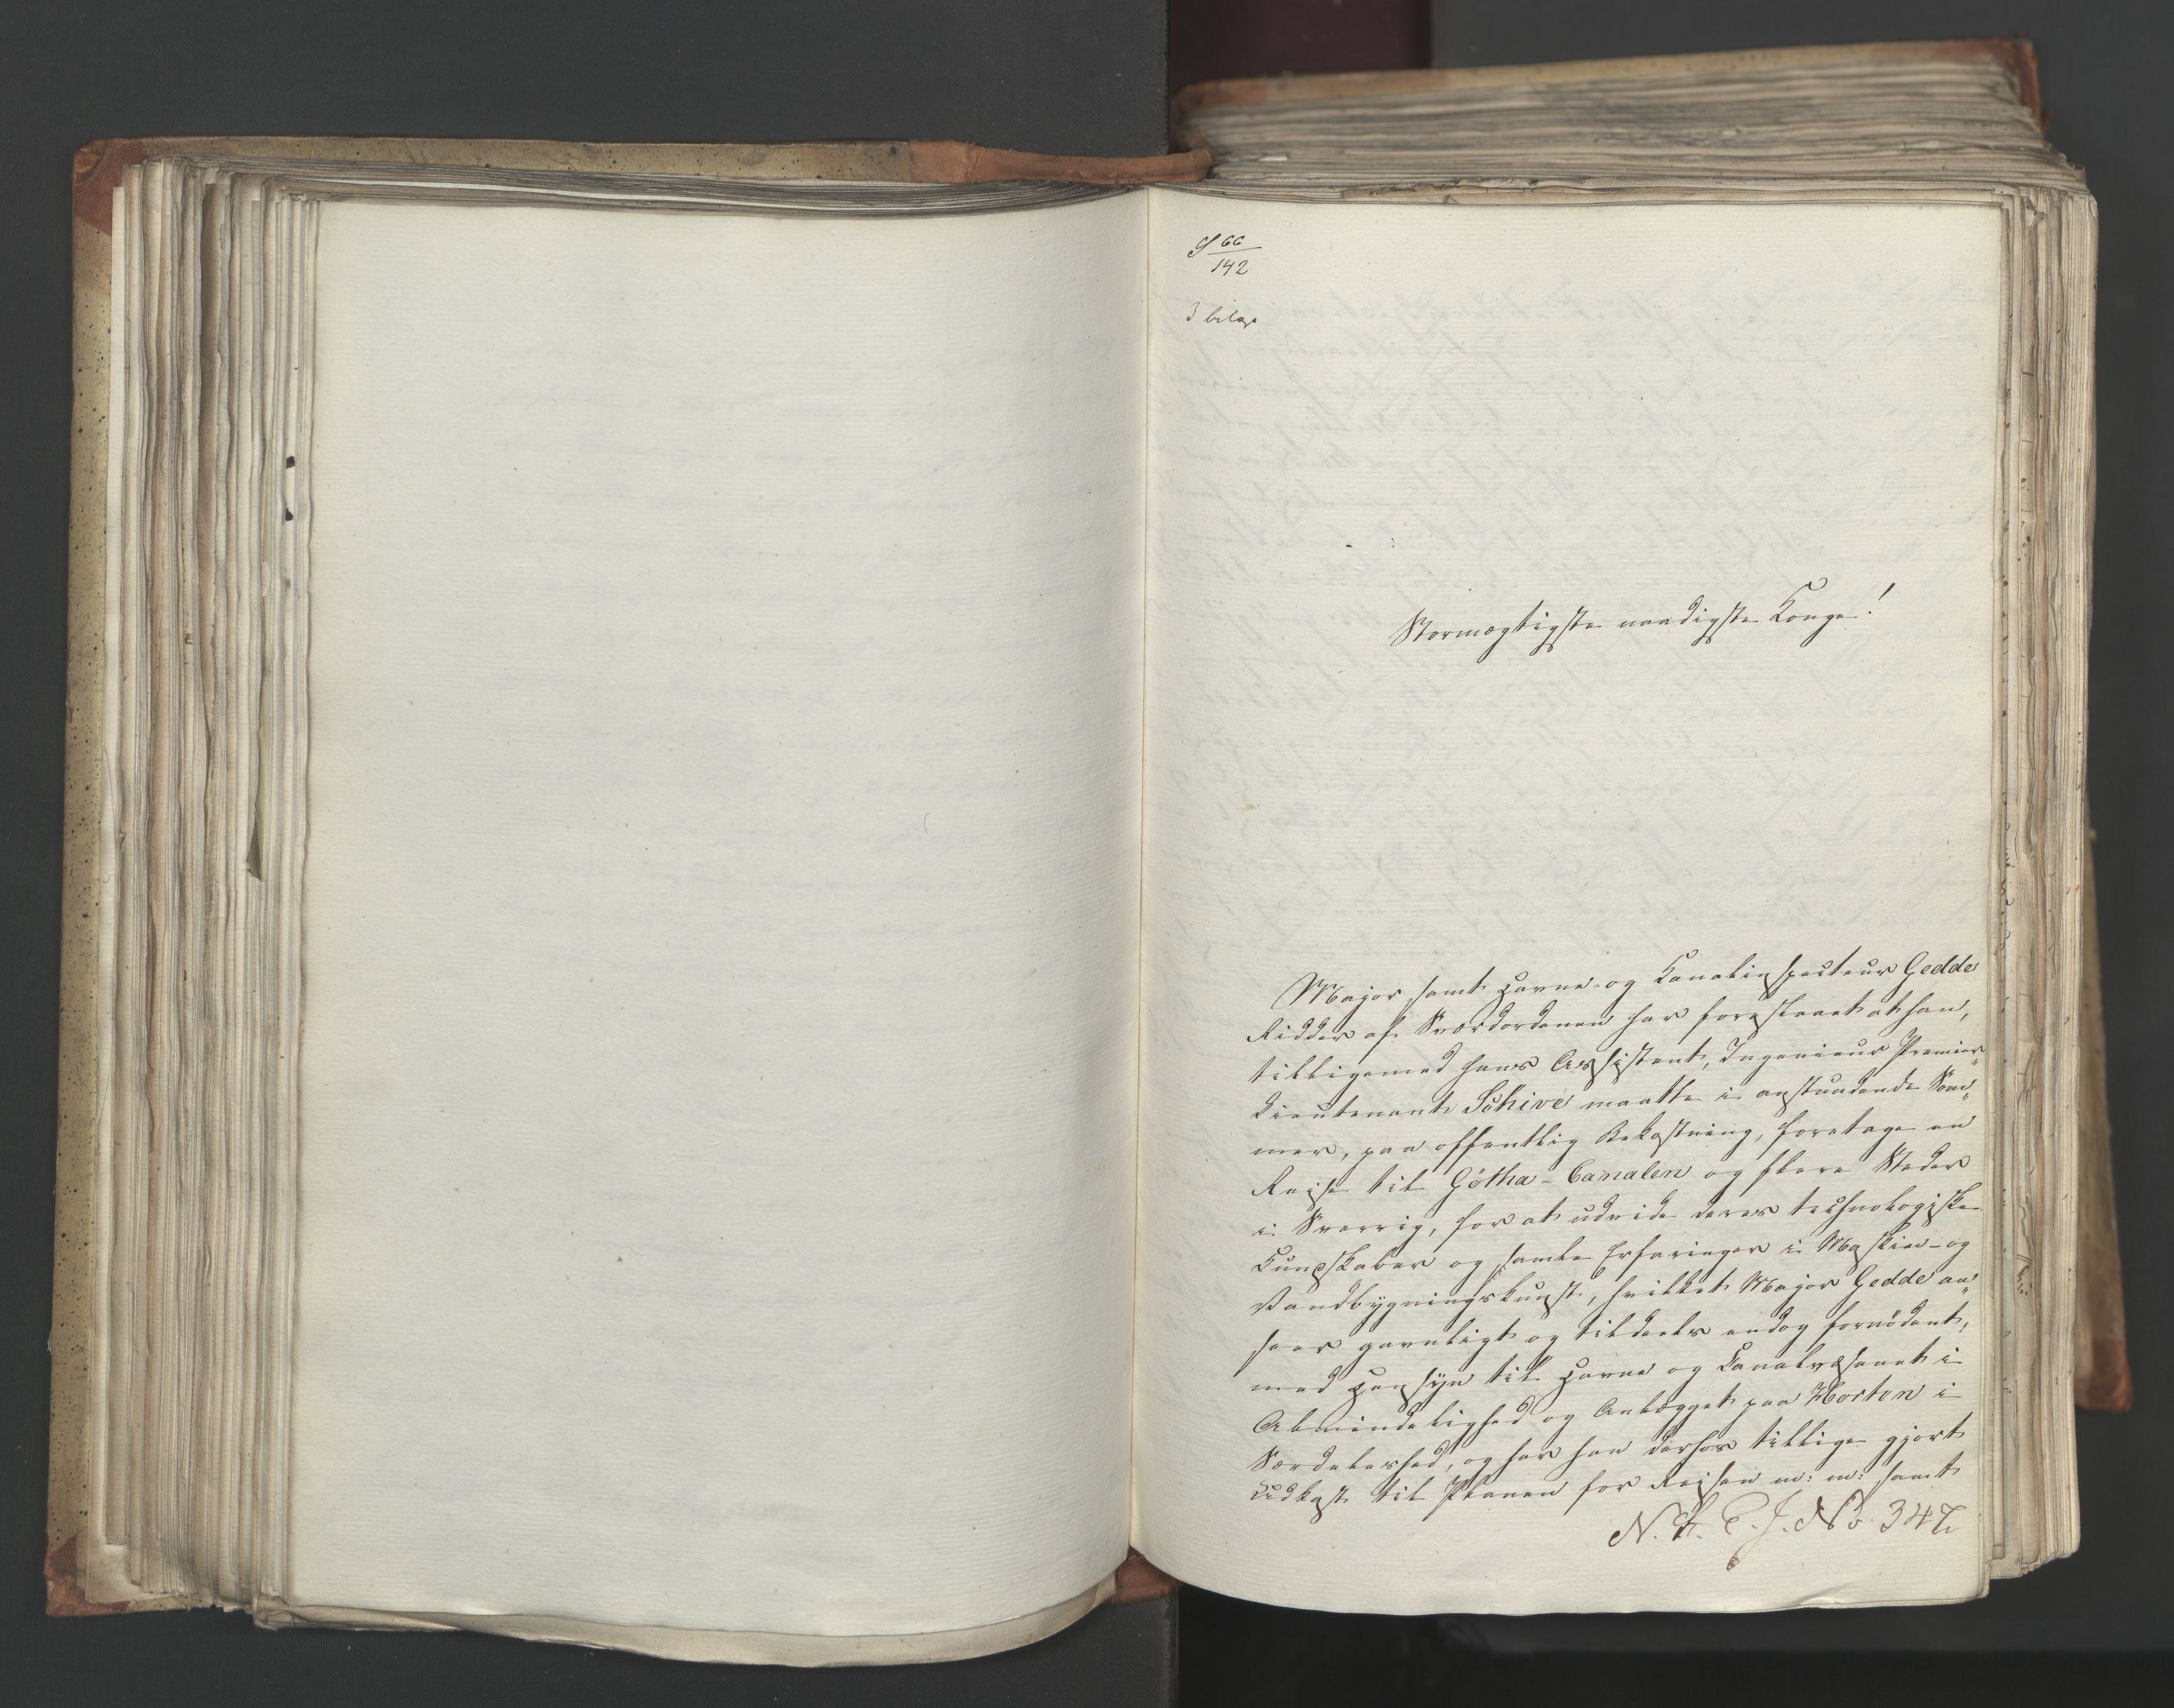 S 66
142
3 bilag
Stormægtigste naadigste Konge!
Major samt Havne- og Kanalinspecteur Gedde
Ridder af Sværdordenen har foreslaaet at han,
tilligemed hans Assistent, Ingenieur Premier-
lieutenant Schive maatte i anstundende Som-
mer, paa offentlig Bekostning, foretage en
Reise til Götha-Canalen og flere Steder
i Sverrig, for at udvide deres technologiske
Kundskaber og samle Erfaringer i Maskin- og
Vandbygningskunst, hvilket Major Gedde an-
seer gavnligt og tildeels endog fornödent,
med Hensyn til Havne og Canalvæsenet i
Almindelighed og Anlægget paa Horten i
Særdeleshed, og har han derhos tillige gjort
Udkast til Planen for Reisen m: m: samt
J. No 347